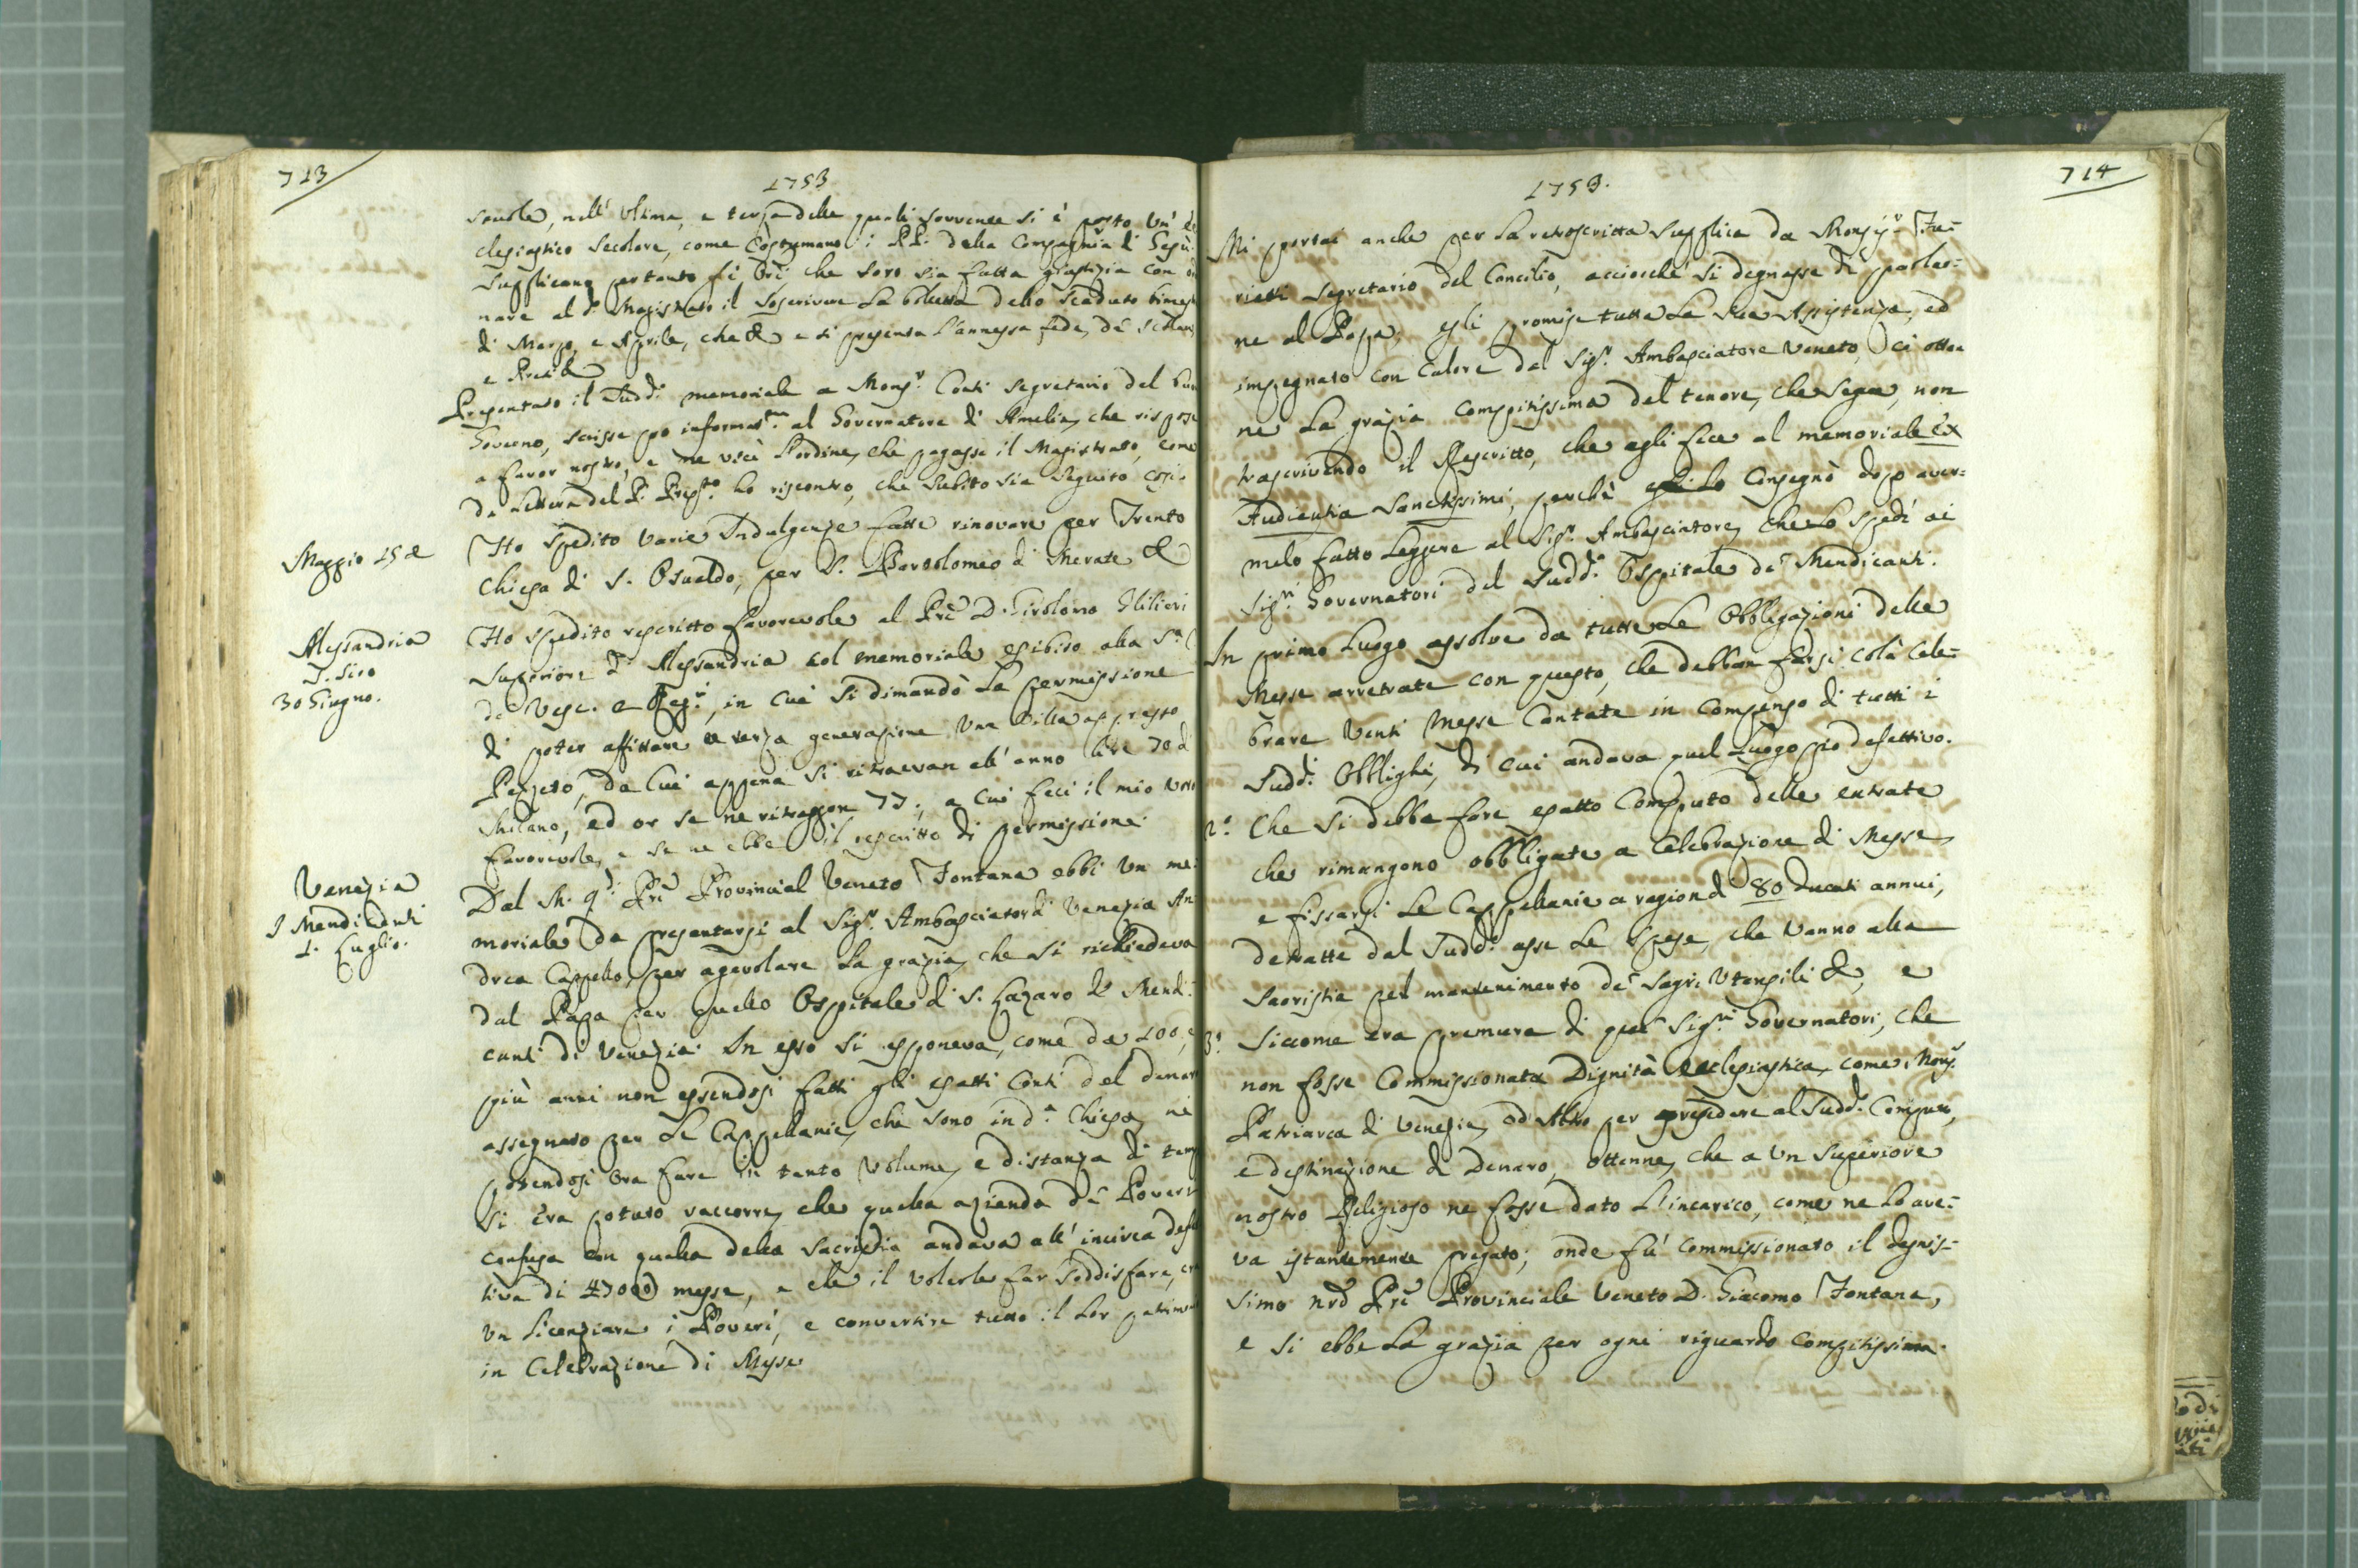 713
1753
scuole, nell' ultima, e terza delle quali sovvente si è posto un' Ec
clesiastico Secolare, come costumano i PP. della Compagnia di Gesù.
Supplicano pertanto gli Ori, che loro sia fatta giustizia con or
nare al d.o Magistrato il soscrivere la bolletta dello scaduto bimes
di Marzo, e Aprile, che &c e si presenta l'annessa fede, de' scolari
e Preti &c
Presentato il Sudd.o memoriale a Mons.r Conti Segretario del buon
Governo, scrisse pro informat.ne al Governatore di Amelia, che rispose
a favor nostro, e ne uscì l'ordine, che pagasse il Magistrato, come
da lettera del P. Prep.to ho riscontro, che subito sia seguito così.
Maggio 15 &
Ho spedito varie Indulgenze fatte rinovare per Trento
Chiesa di S. Osualdo, per S. Bartolomeo di Merate &c
Alessandria
S. Siro
30 Giugno.
Ho spedito rescritto favorevole al Prē D. Girolamo Glilieri
Superiore di Alessandria col memoriale esibito alla S.a C
de' Vesc. e Reg.ri, in cui si dimandò la permissione
di poter affittare a terza generazione una Villa appresso
Pezzeto, da cui appena si ritraevan all' anno lire 70 di
Milano, ed or se ne ritraggon 77; a cui feci il mio voto
favorevole, e se ne ebbe il rescritto di permissione.
Venezia
I Mendicanti
1. Luglio.
Dal M. R.do Prē Provincial Veneto Fontana ebbi un me:
moriale da presentarsi al Sig.r Ambasciator di Venezia An
drea Cappello, per agevolare la grazia, che si richiedeva
dal Papa per quello Ospitale di S. Lazaro de' Mendi:
canti di Venezia. In esso si esponeva, come da 100, e
più anni non essendosi fatti gli esatti conti del denaro
assegnato per le Cappellanie, che sono in d.a Chiesa, nè
potendosi ora fare in tanto volume, e distanza di temp
si era potuto raccorre, che quella azienda de' Poveri
confusa con quella della Sacristia andava all' incirca defet
tiva di 47000 messe, e che il volerle far soddisfare, era
un licenziare i Poveri, e convertire tutto il lor patrimon
in celebrazione di Messe
714
1753.
Mi portai anche per la retroscritta supplica da Monsig.r Fu=
rietti Segretario del Concilio, acciocchè si degnasse di parlar=
ne al Papa; egli promise tutta la sua Assistenza, ed
impegnato con calore dal Sig.r Ambasciatore Veneto, ci otten
ne la grazia compitissima del tenore, che segue, non
trascrivendo il Rescritto, che egli fece al memoriale Ex
Audientia Sanctissimi, perchè lo consegnò dopo aver=
melo fatto leggere al Sig.r Ambasciatore, che lo spedì ai
Sig.ri Governatori del Sudd.o Ospitale de' Mendicanti.
In primo luogo assolve da tutte le Obbligazioni delle
Messe arretrate con questo, che debban farsi colà cele=
brare venti Messe Cantate in compenso di tutti i
Sudd.i Obblighi, di cui andava quel Luogo pio defettivo.
2.o Che si debba fare esatto Computo delle entrate
che rimangono obbligate a Celebrazione di Messe,
e fissarsi le Cappellanie a ragion di 80 Ducati annui,
detratte dal Sudd.o asse le spese, che vanno alla
Sacristia pel mantenimento de' Sagri Utensili &c, e
3.o Siccome era premura di que' Sig.ri Governatori, che
non fosse Commissionata Dignità Ecclesiastica, come Mons.r
Patriarca di Venezia, od Altro per presiedere al Sudd.o Computo,
e destinazione di Denaro, ottenne, che a un Superiore
nostro Religioso ne fosse dato l'incarico, come ne lo ave=
va istantemente pregato; onde fu commissionato il degnis=
simo nrō Prē Provinciale Veneto D. Giacomo Fontana,
e si ebbe la grazia per ogni riguardo compitissima.